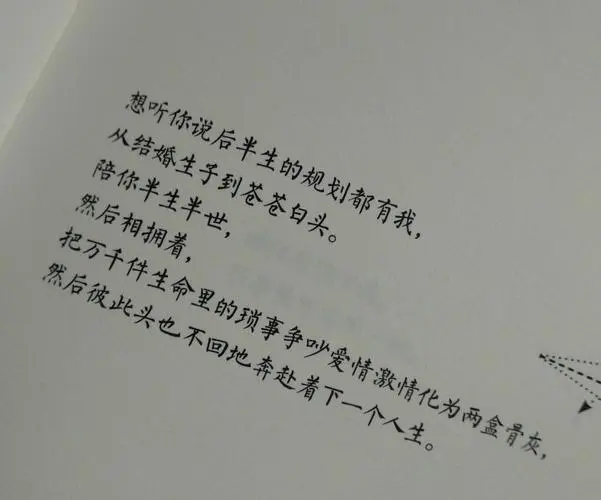 想听你说后半生的规划都有我，
从结婚生子到苍苍白头。
陪你半生半世，
然后相拥着，
把万千件生命里的琐事争吵爱情激情化为两盒骨灰，
然后彼此头也不回地奔赴着下一个人生。